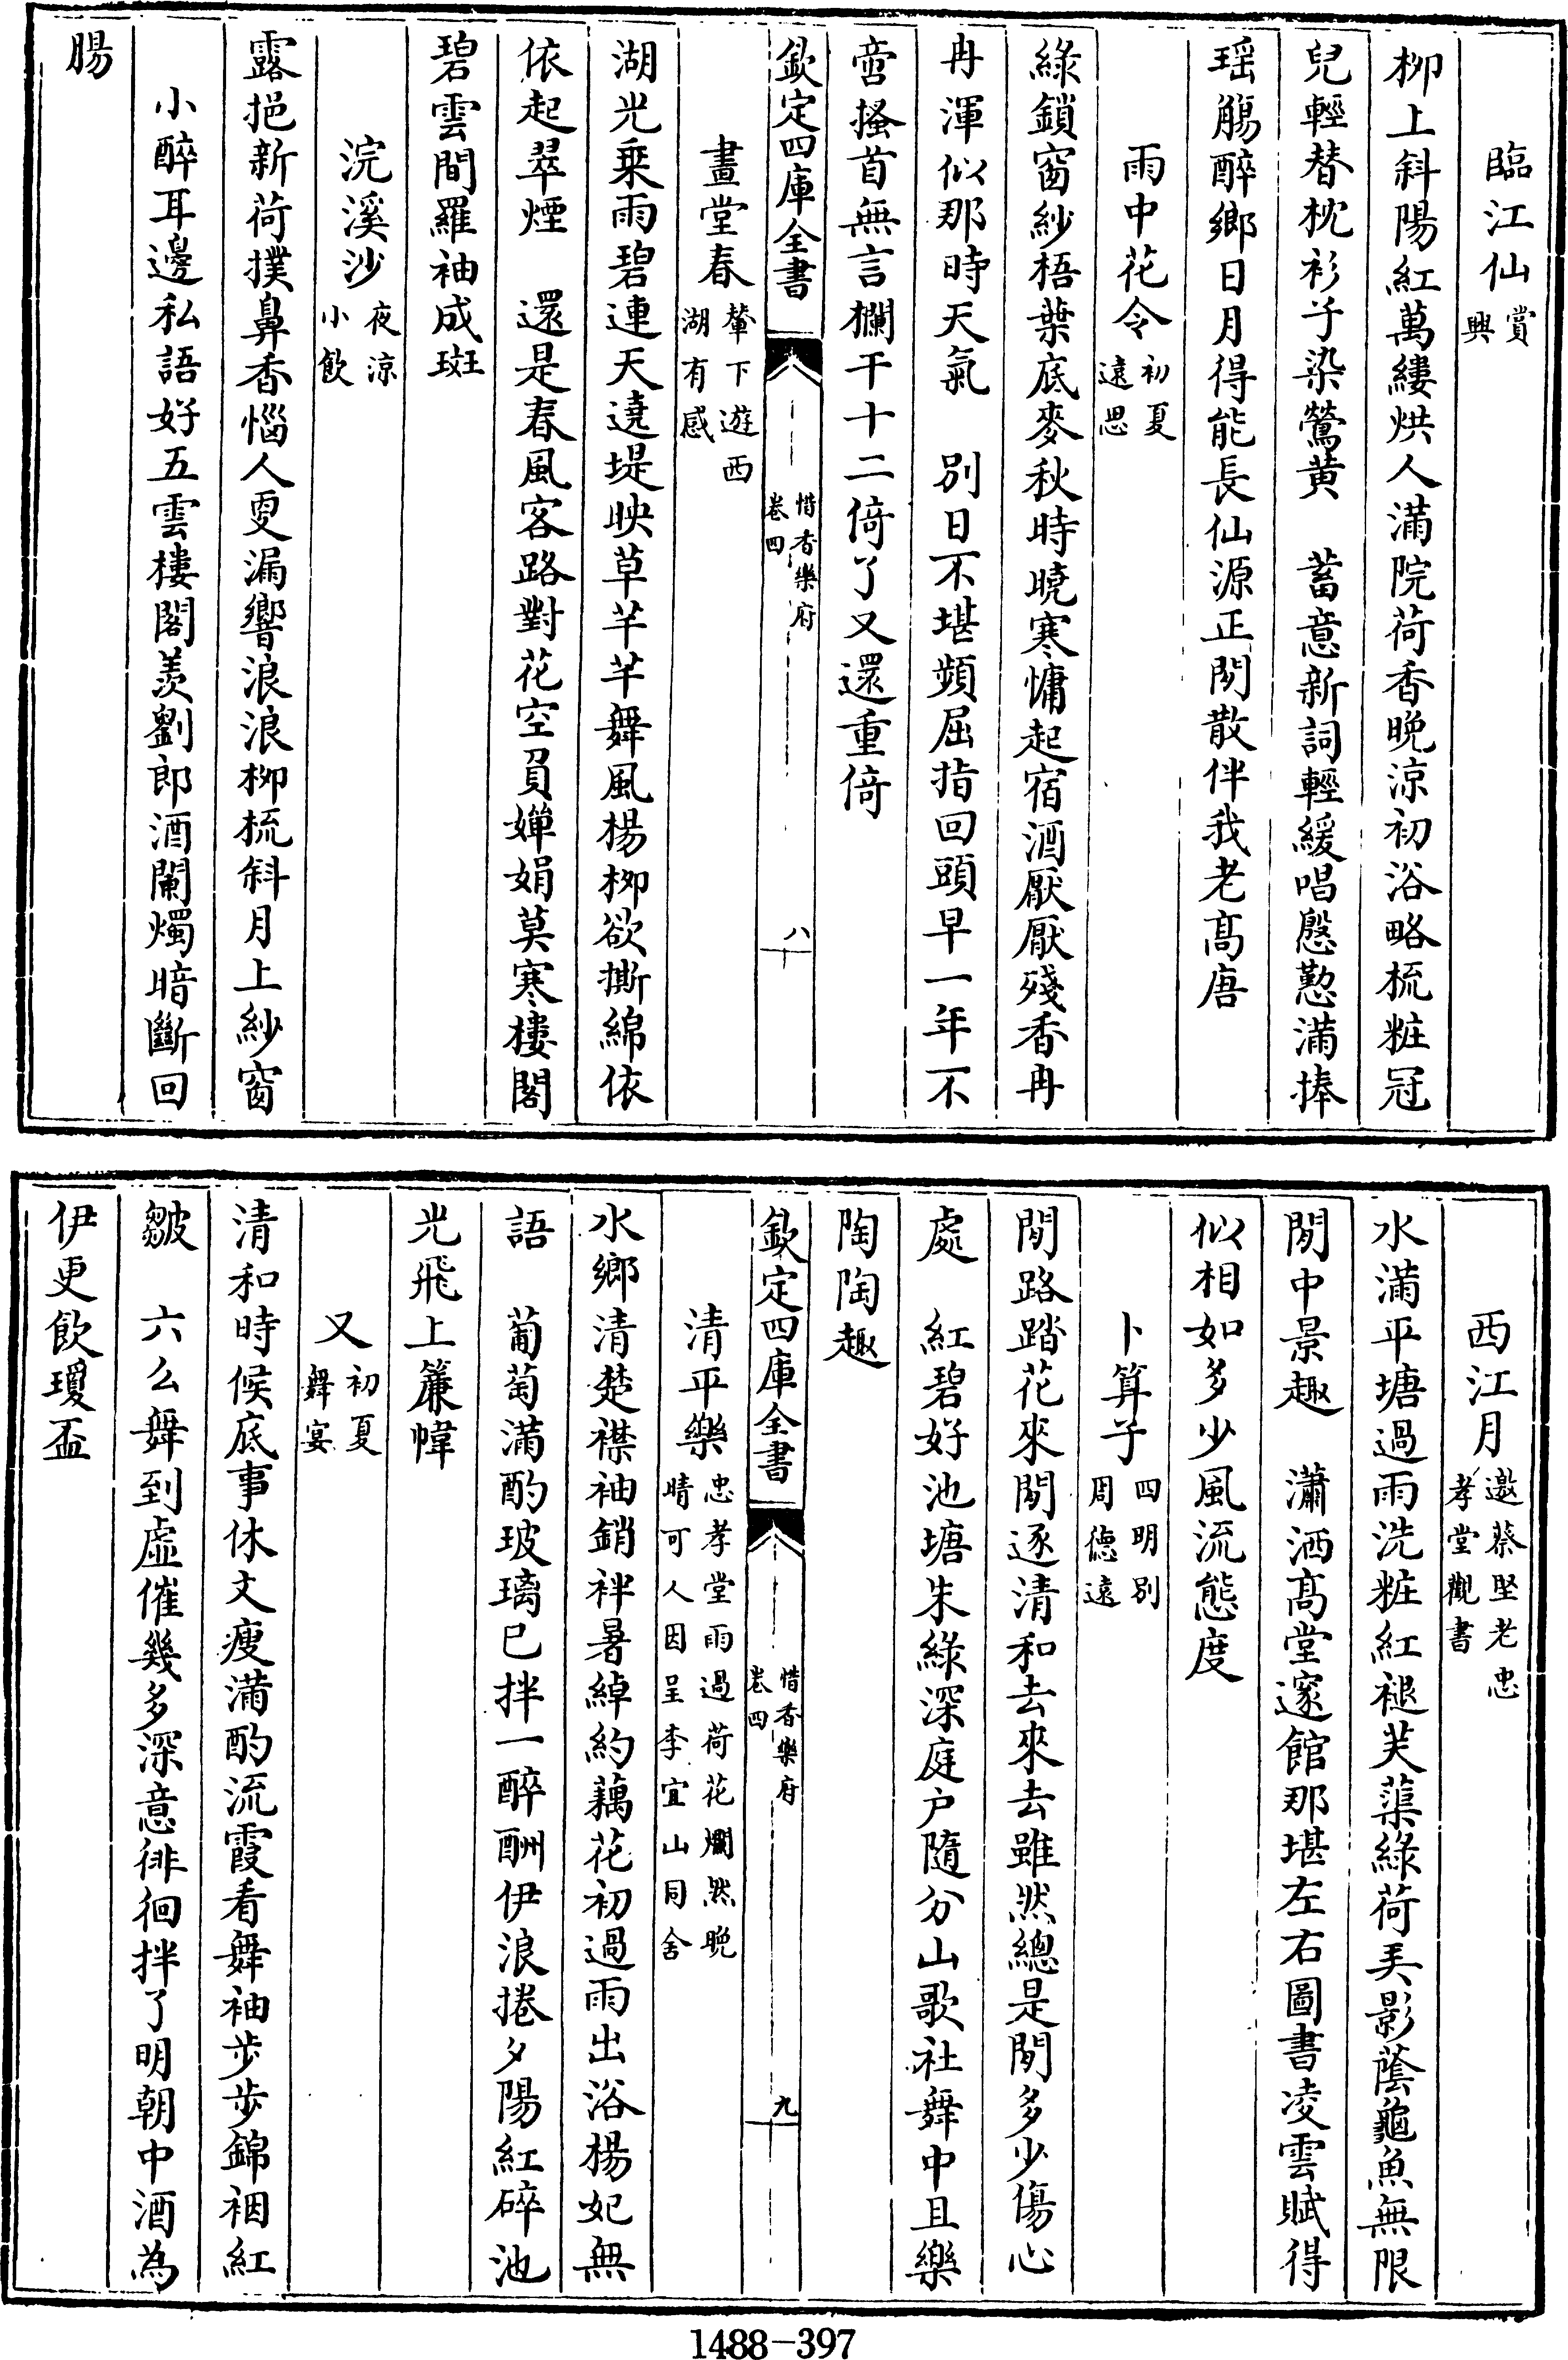 臨江仙賞興
柳上斜陽紅萬縷烘人滿院荷香晚涼初浴略梳粧冠
兒輕替枕衫子染鶯黄　蓄意新詞輕緩唱慇懃滿捧
瑶觴醉鄉日月得能長仙源正閒散伴我老髙唐
雨中花令初夏遠思
綠鎖窗紗梧葉底麥秋時曉寒慵起宿酒厭厭殘香冉
冉渾似那時天氣　別日不堪頻屈指回頭早一年不
啻搔首無言欄干十二倚了又還重倚
欽定四庫全書　惜香樂府卷四　八
畫堂春輦下遊西湖有感
湖光乗雨碧連天遶堤映草芊芊舞風楊柳欲撕綿依
依起翠煙　還是春風客路對花空負嬋娟莫寒樓閣
碧雲間羅袖成斑
浣溪沙夜涼小飲
露挹新荷撲鼻香惱人更漏響浪浪柳梳斜月上紗窗
小醉耳邊私語好五雲樓閣羨劉郎酒闌燭暗斷回
腸
西江月邀蔡堅老忠孝堂觀書
水滿平塘過雨洗粧紅褪芙蕖綠荷美影蔭龜魚無限
閒中景趣　瀟洒髙堂邃館那堪左右圖書凌雲賦得
似相如多少風流態度
卜算子四明別周德遠
閒路踏花來閒逐清和去來去雖然總是閒多少傷心
處　紅碧好池塘朱綠深庭户隨分山歌社舞中且樂
陶陶趣
欽定四庫全書　惜香樂府卷四　九
清平樂忠孝堂雨過荷花爛然晚晴可人因呈李宜山同舍
水鄉清楚襟袖銷袢暑綽約藕花初過雨出浴楊妃無
語　葡萄滿酌玻璃已拌一醉酬伊浪捲夕陽紅碎池
光飛上簾幃
又初夏舞宴
清和時候底事休文瘦滿酌流霞看舞袖步步錦裀紅
皺　六么舞到虛催幾多深意徘徊拌了明朝中酒為
伊更飲瓊盃
1488-397